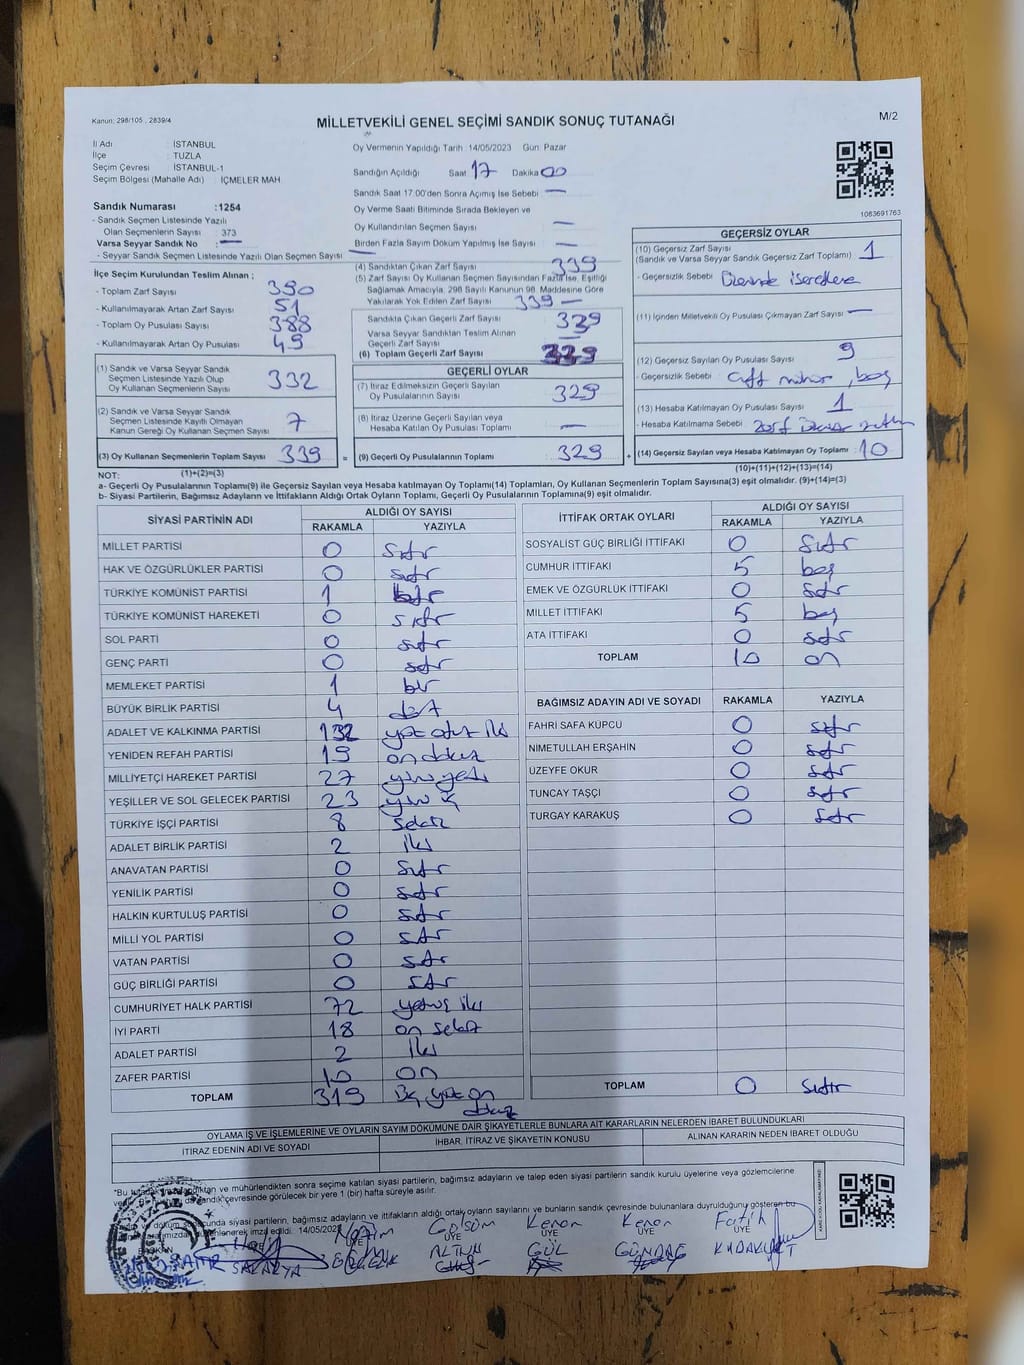 Kanun: 298/105 , 2839/4
MİLLETVEKİLİ GENEL SEÇİMİ SANDIK SONUÇ TUTANAĞI
M/2
İl Adı : İSTANBUL
İlçe : TUZLA
Seçim Çevresi : İSTANBUL-1
Seçim Bölgesi (Mahalle Adı) : İÇMELER MAH
Oy Vermenin Yapıldığı Tarih: 14/05/2023 Gün: Pazar
Sandığın Açıldığı Saat 17 Dakika 00
Sandık Saat 17.00'den Sonra Açımış İse Sebebi —
Oy Verme Saati Bitiminde Sırada Bekleyen ve
Oy Kullandırılan Seçmen Sayısı —
Birden Fazla Sayım Döküm Yapılmış İse Sayısı —
1083691763
Sandık Numarası : 1254
- Sandık Seçmen Listesinde Yazılı
Olan Seçmenlerin Sayısı : 373
Varsa Seyyar Sandık No : —
- Seyyar Sandık Seçmen Listesinde Yazılı Olan Seçmen Sayısı —
İlçe Seçim Kurulundan Teslim Alınan ;
- Toplam Zarf Sayısı 390
- Kullanılmayarak Artan Zarf Sayısı 51
- Toplam Oy Pusulası Sayısı 388
- Kullanılmayarak Artan Oy Pusulası 49
(1) Sandık ve Varsa Seyyar Sandık
Seçmen Listesinde Yazılı Olup
Oy Kullanan Seçmenlerin Sayısı 332
(2) Sandık ve Varsa Seyyar Sandık
Seçmen Listesinde Kayıtlı Olmayan
Kanun Gereği Oy Kullanan Seçmen Sayısı 7
(3) Oy Kullanan Seçmenlerin Toplam Sayısı 339 =
(4) Sandıktan Çıkan Zarf Sayısı 339
(5) Zarf Sayısı Oy Kullanan Seçmen Sayısından Fazla İse, Eşitliği
Sağlamak Amacıyla, 298 Sayılı Kanunun 98. Maddesine Göre
Yakılarak Yok Edilen Zarf Sayısı 339 —
Sandıkta Çıkan Geçerli Zarf Sayısı 339
Varsa Seyyar Sandıktan Teslim Alınan
Geçerli Zarf Sayısı —
(6) Toplam Geçerli Zarf Sayısı
GEÇERLİ OYLAR
(7) İtiraz Edilmeksizin Geçerli Sayılan
Oy Pusulalarının Sayısı 329
(8) İtiraz Üzerine Geçerli Sayılan veya
Hesaba Katılan Oy Pusulası Toplamı —
(9) Geçerli Oy Pusulalarının Toplamı 329 +
GEÇERSİZ OYLAR
(10) Geçersiz Zarf Sayısı
(Sandık ve Varsa Seyyar Sandık Geçersiz Zarf Toplamı) 1
- Geçersizlik Sebebi Üzerinde
(11) İçinden Milletvekili Oy Pusulası Çıkmayan Zarf Sayısı —
(12) Geçersiz Sayılan Oy Pusulası Sayısı 9
- Geçersizlik Sebebi Çift mühür, boş
(13) Hesaba Katılmayan Oy Pusulası Sayısı 1
- Hesaba Katılmama Sebebi zarf
(14) Geçersiz Sayılan veya Hesaba Katılmayan Oy Toplamı 10
(1)+(2)=(3)
(10)+(11)+(12)+(13)=(14)
NOT:
a- Geçerli Oy Pusulalarının Toplamı(9) ile Geçersiz Sayılan veya Hesaba katılmayan Oy Toplamı(14) Toplamları, Oy Kullanan Seçmenlerin Toplam Sayısına(3) eşit olmalıdır. (9)+(14)=(3)
b- Siyasi Partilerin, Bağımsız Adayların ve İttifakların Aldığı Ortak Oyların Toplamı, Geçerli Oy Pusulalarının Toplamına(9) eşit olmalıdır.
SİYASİ PARTİNİN ADI ALDIĞI OY SAYISI
RAKAMLA YAZIYLA
MİLLET PARTİSİ 0 sıfır
HAK VE ÖZGÜRLÜKLER PARTİSİ 0 sıfır
TÜRKİYE KOMÜNİST PARTİSİ 1 bir
TÜRKİYE KOMÜNİST HAREKETİ 0 sıfır
SOL PARTİ 0 sıfır
GENÇ PARTİ 0 sıfır
MEMLEKET PARTİSİ 1 bir
BÜYÜK BİRLİK PARTİSİ 4 dört
ADALET VE KALKINMA PARTİSİ 132 yüz otuz iki
YENİDEN REFAH PARTİSİ 19 on dokuz
MİLLİYETÇİ HAREKET PARTİSİ 27 yirmi yedi
YEŞİLLER VE SOL GELECEK PARTİSİ 23 yirmi üç
TÜRKİYE İŞÇİ PARTİSİ 8 sekiz
ADALET BİRLİK PARTİSİ 2 iki
ANAVATAN PARTİSİ 0 sıfır
YENİLİK PARTİSİ 0 sıfır
HALKIN KURTULUŞ PARTİSİ 0 sıfır
MİLLİ YOL PARTİSİ 0 sıfır
VATAN PARTİSİ 0 sıfır
GÜÇ BİRLİĞİ PARTİSİ 0 sıfır
CUMHURİYET HALK PARTİSİ 72 yetmiş iki
İYİ PARTİ 18 on sekiz
ADALET PARTİSİ 2 iki
ZAFER PARTİSİ 10 on
TOPLAM 319 üç yüz on
dokuz
İTTİFAK ORTAK OYLARI ALDIĞI OY SAYISI
RAKAMLA YAZIYLA
SOSYALİST GÜÇ BİRLİĞİ İTTİFAKI 0 sıfır
CUMHUR İTTİFAKI 5 beş
EMEK VE ÖZGÜRLÜK İTTİFAKI 0 sıfır
MİLLET İTTİFAKI 5 beş
ATA İTTİFAKI 0 sıfır
TOPLAM 10 on
BAĞIMSIZ ADAYIN ADI VE SOYADI RAKAMLA YAZIYLA
FAHRİ SAFA KÜPCÜ 0 sıfır
NİMETULLAH ERŞAHİN 0 sıfır
ÜZEYFE OKUR 0 sıfır
TUNCAY TAŞÇI 0 sıfır
TURGAY KARAKUŞ 0 sıfır
TOPLAM 0 sıfır
OYLAMA İŞ VE İŞLEMLERİNE VE OYLARIN SAYIM DÖKÜMÜNE DAİR ŞİKAYETLERLE BUNLARA AİT KARARLARIN NELERDEN İBARET BULUNDUKLARI
İTİRAZ EDENİN ADI VE SOYADI İHBAR, İTİRAZ VE ŞİKAYETİN KONUSU ALINAN KARARIN NEDEN İBARET OLDUĞU
*Bu mühürlendikten sonra seçime katılan siyasi partilerin, bağımsız adayların ve talep eden siyasi partilerin sandık kurulu üyelerine veya gözlemcilerine
sandık çevresinde görülecek bir yere 1 (bir) hafta süreyle asılır.
döküm sonucunda siyasi partilerin, bağımsız adayların ve ittifakların aldığı ortak oyların sayılarını ve bunların sandık çevresinde bulunanlara duyrulduğunu gösteren bu
imza edildi. 14/05/2023
Gülsüm Kenan Kenan Fatih
BAŞKAN ÜYE ÜYE ÜYE ÜYE
SAKARYA ALTUN GÜL GÜNDAĞ KARAKURT